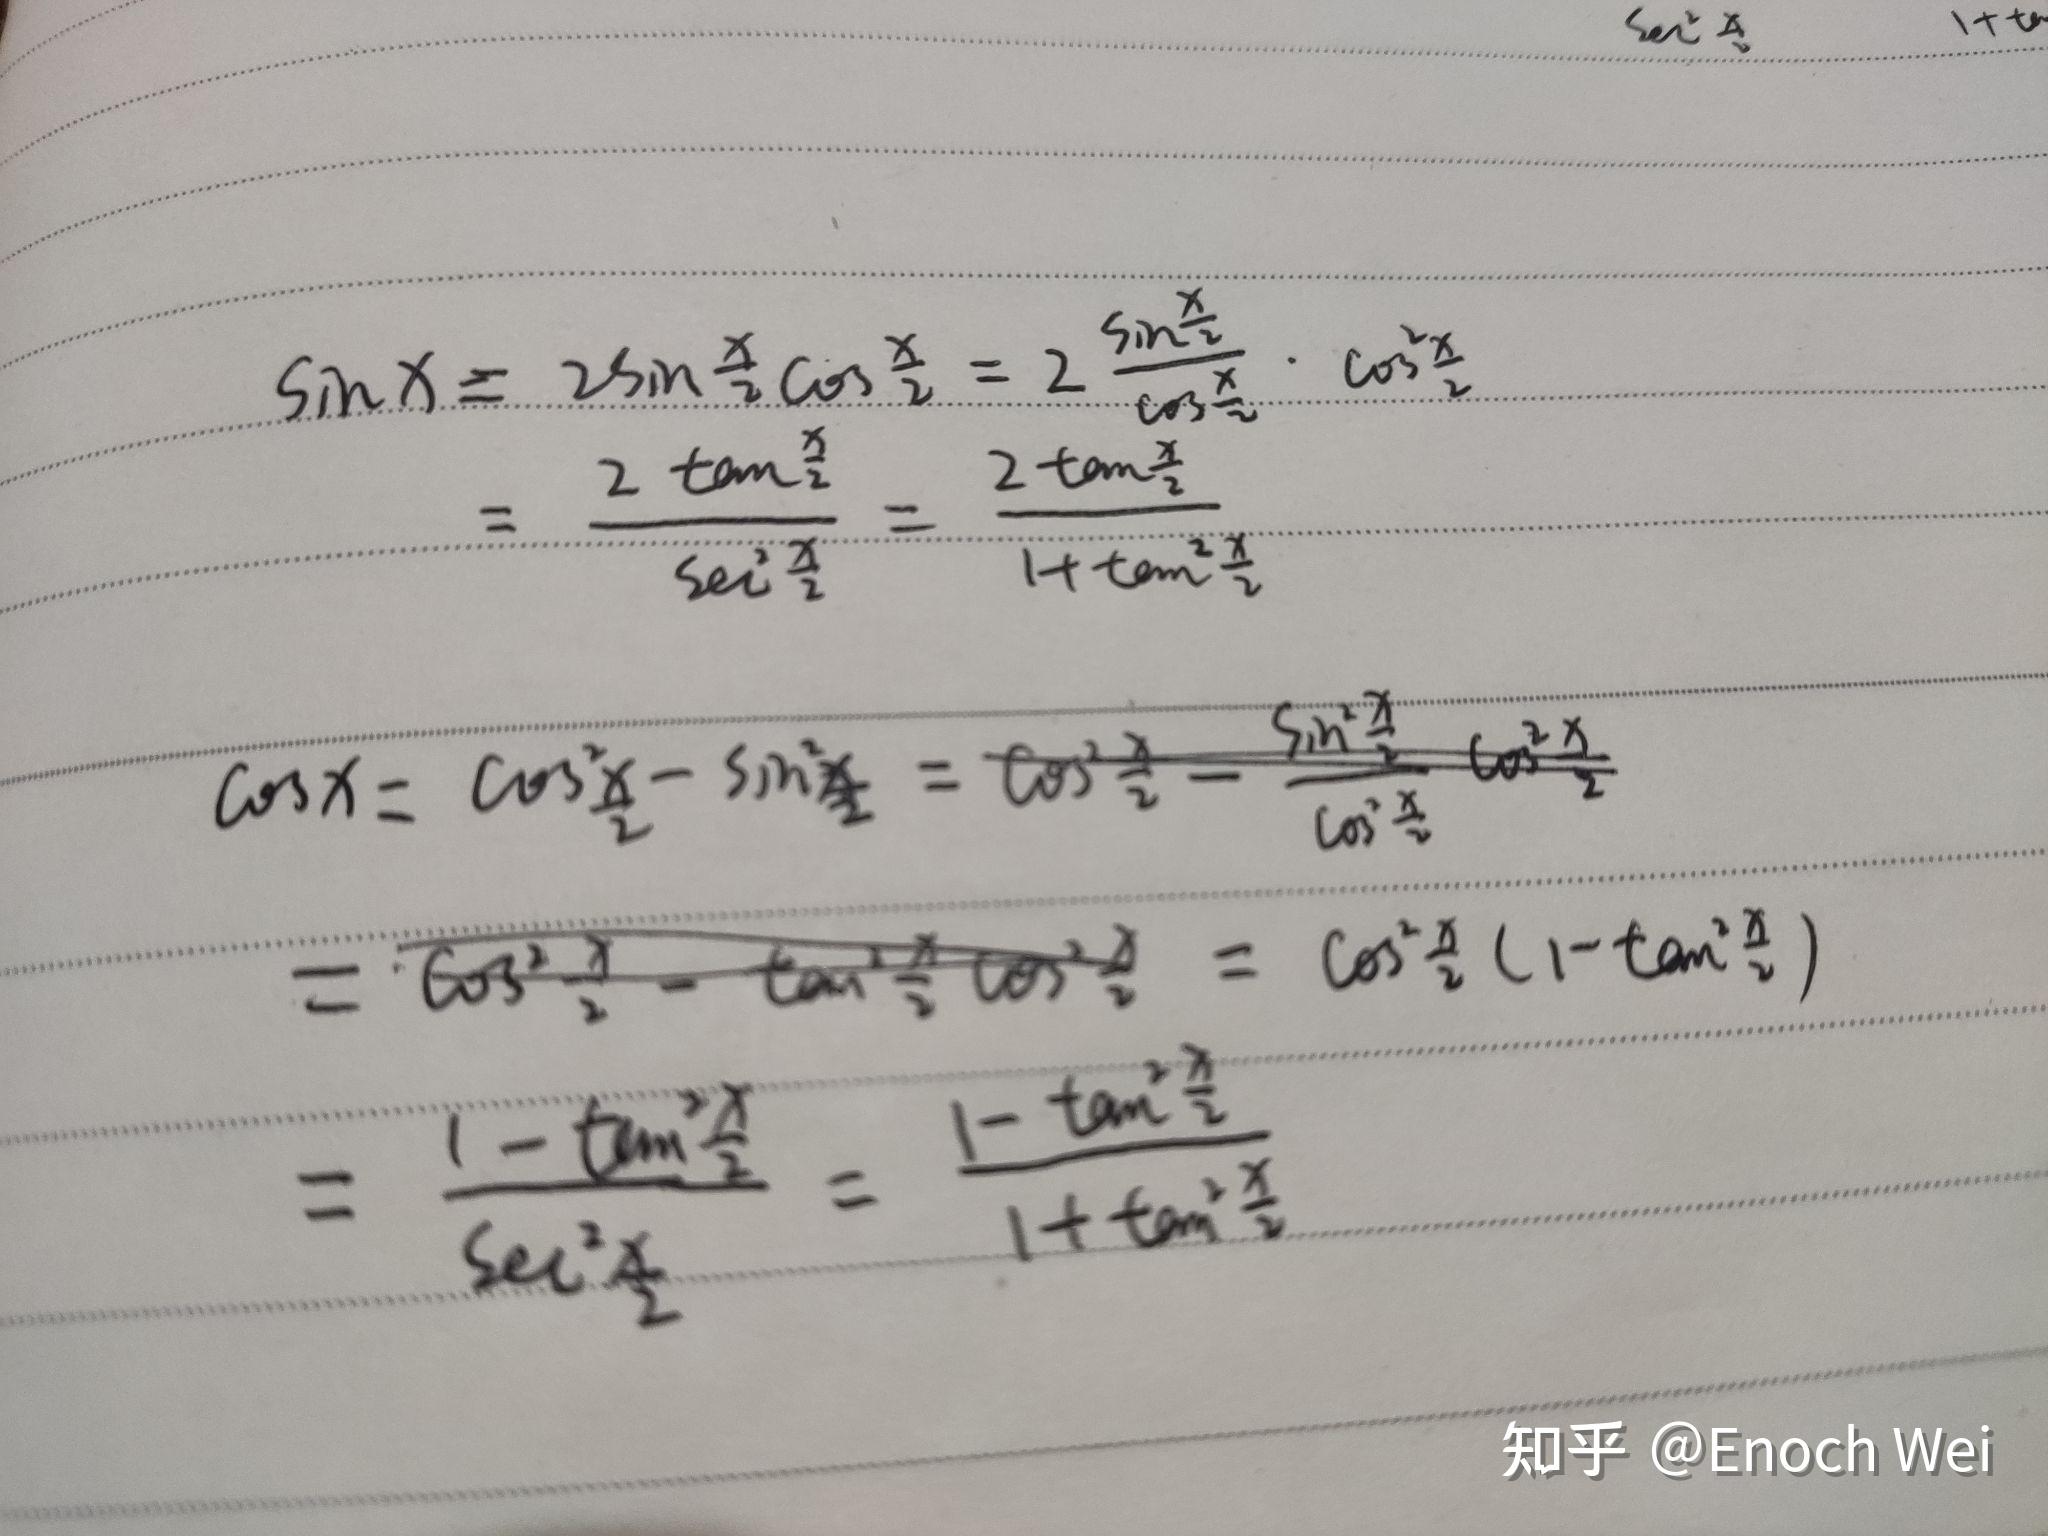 sec² x/2 1+ta
sin x = 2 sin x/2 cos x/2 = 2 (sin x/2)/(cos x/2) · cos² x/2
= (2 tan x/2)/(sec² x/2) = (2 tan x/2)/(1+tan² x/2)
cos x = cos² x/2 − sin² x/2 = cos² x/2 − (sin² x/2)/(cos² x/2) cos² x/2
= cos² x/2 − tan² x/2 cos² x/2 = cos² x/2 (1−tan² x/2)
= (1 − tan² x/2)/(sec² x/2) = (1 − tan² x/2)/(1+tan² x/2)
知乎 @Enoch Wei